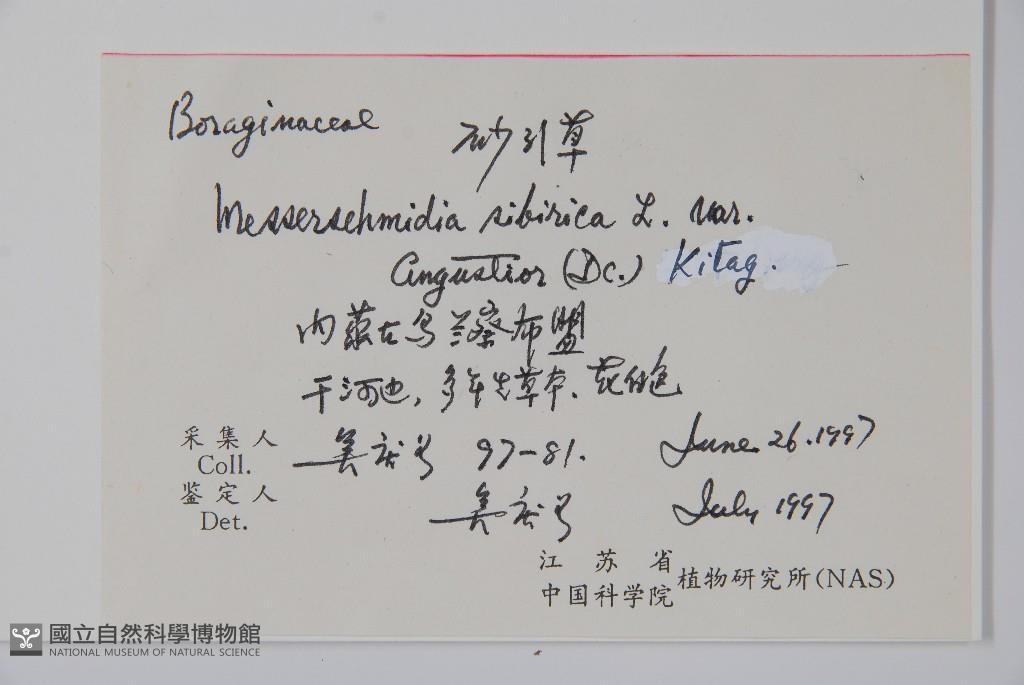 Boraginaceae 砂引草
Messerschmidia sibirica L. var.
angustior (Dc.) Kitag.
内蒙古乌兰察布盟
干河边, 多年生草本、花白色
采集人
Coll. 97-81. June 26.1997
鉴定人
Det. July 1997
江苏省
中国科学院 植物研究所(NAS)
國立自然科學博物館
NATIONAL MUSEUM OF NATURAL SCIENCE